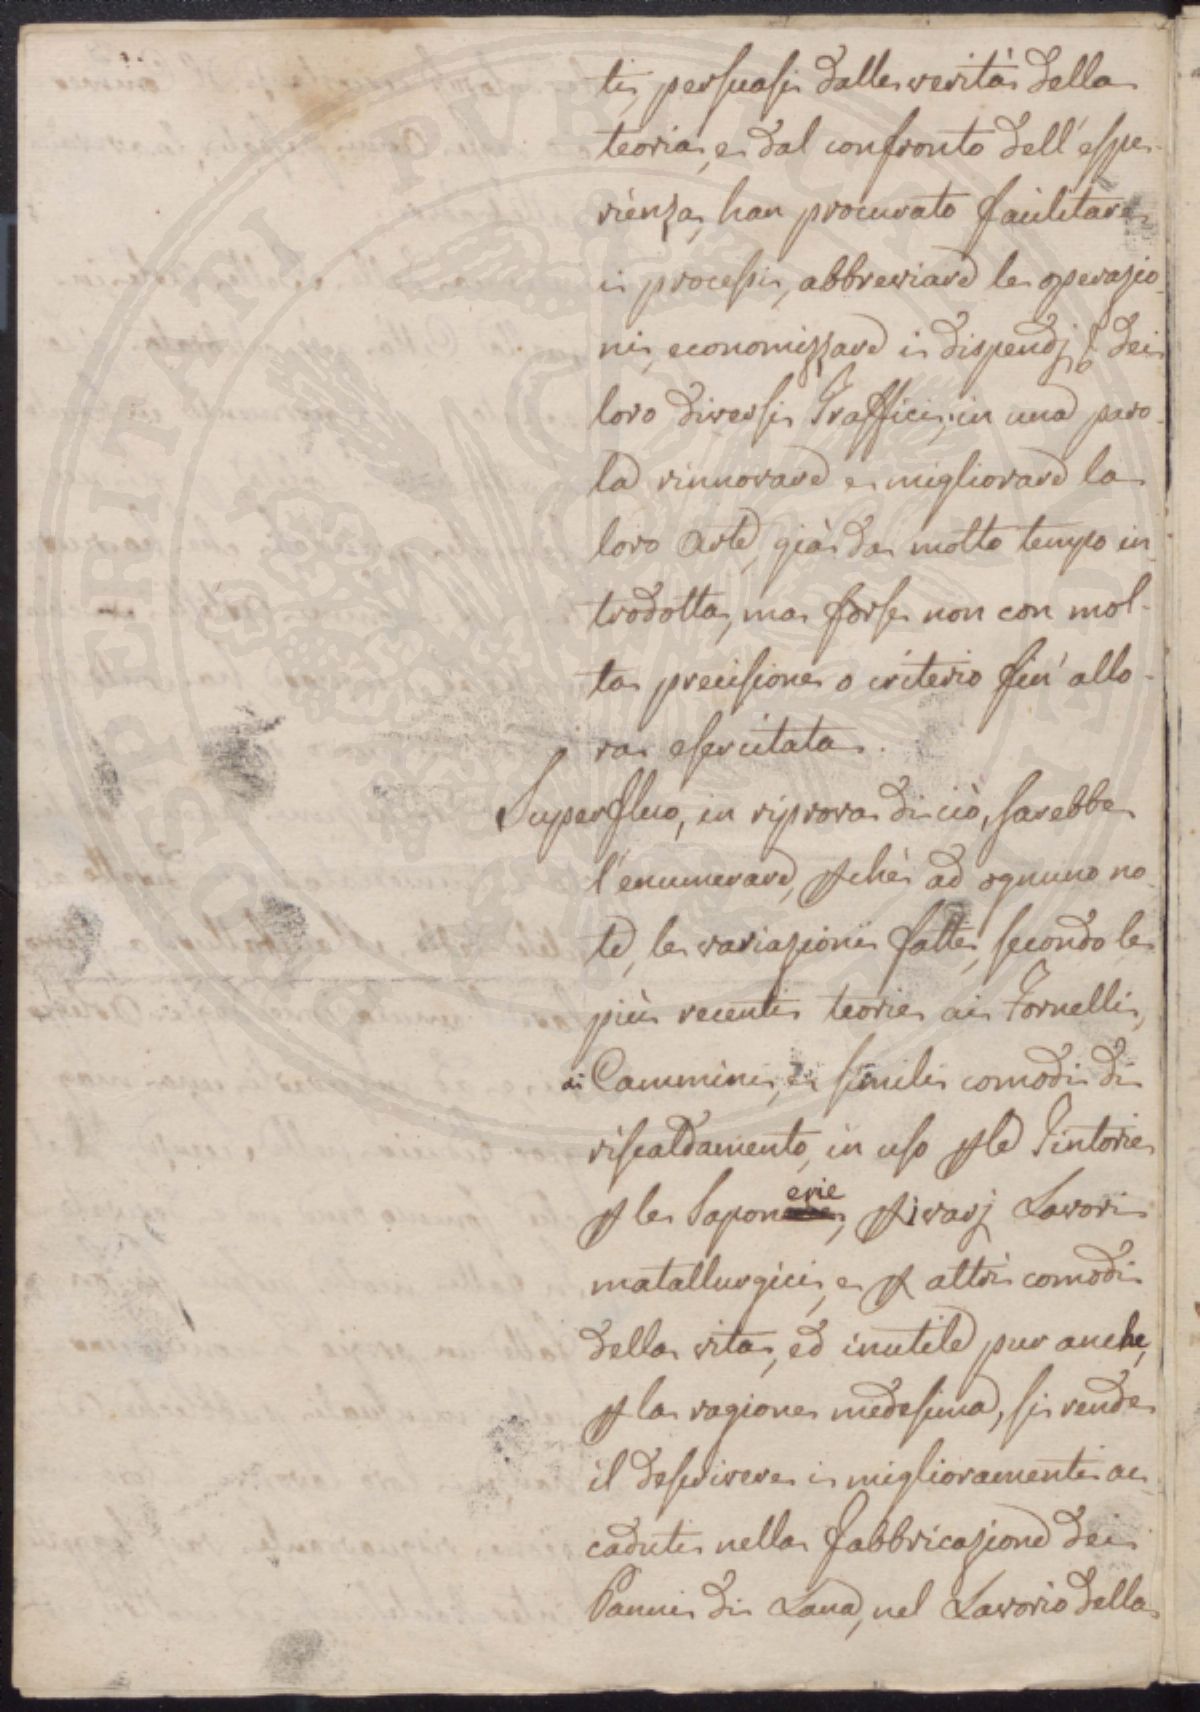 ti, persuasi dalla verità della
teoria, e dal confronto dell'espe-
rienza, han procurato facilitare
i processi, abbreviare le operazio-
ni, economizzare i dispendj dei
loro diversi Traffici; in una paro-
la rinnovare e migliorare la
loro Arte, già da molto tempo in-
trodotta, ma forse non con mol-
ta precisione o criterio fin' allo-
ra esercitata.
Superfluo, in riprova di ciò, sarebbe
l'enumerare, pchè ad ognuno no-
te, le variazioni fatte, secondo le
più recenti teorie ai Fornelli,
ai Cammini, e simili comodi di
riscaldamento, in uso p le Tintorie
p le Saponerie, p i varj Lavori
matallurgici, e p altri comodi
della vita, ed inutile pur anche,
p la ragione medesima, si rende
il descrivere i miglioramenti ac-
caduti nella fabbricazione dei
Panni di Lana, nel Lavorio della
PUBLICAE PROSPERITATI